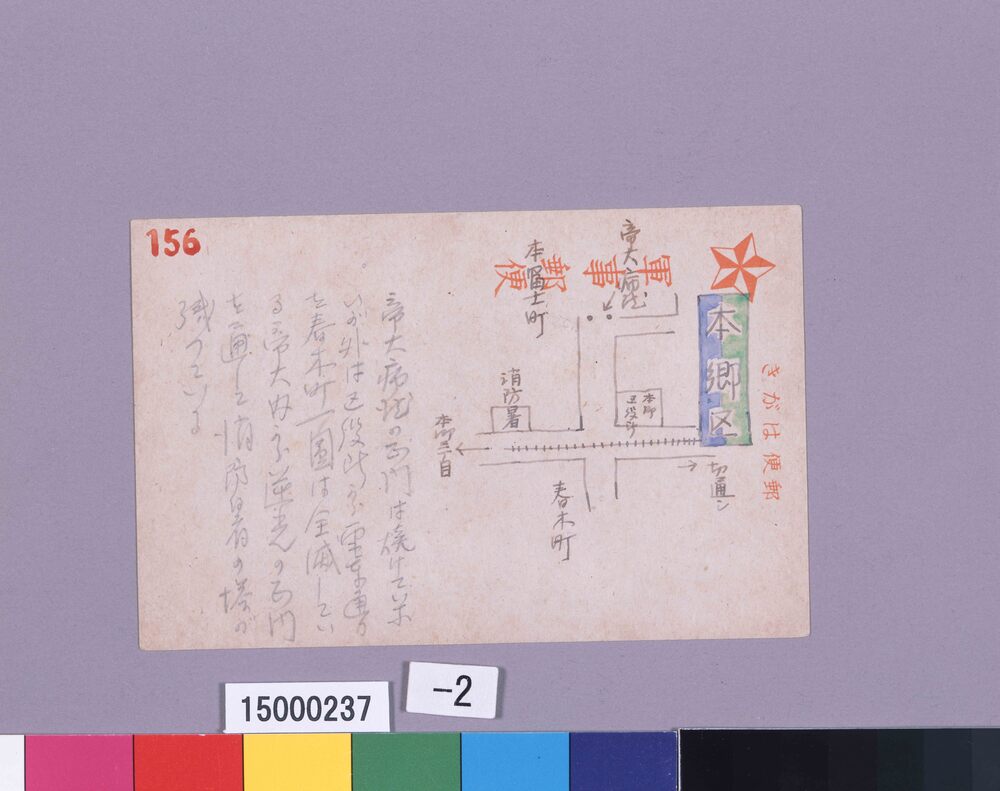 156
軍事郵便
きがは便郵
本郷区
帝大病院
本富士町
消防署
本郷区役所
本郷三丁目
切通シ
春木町
帝大病院の正門は焼けていな
いが外は区役所から電車通り
を春木町一圓は全滅してい
る帝大内から逆光の正門
を通して消防署の塔が
残っている
15000237
-2